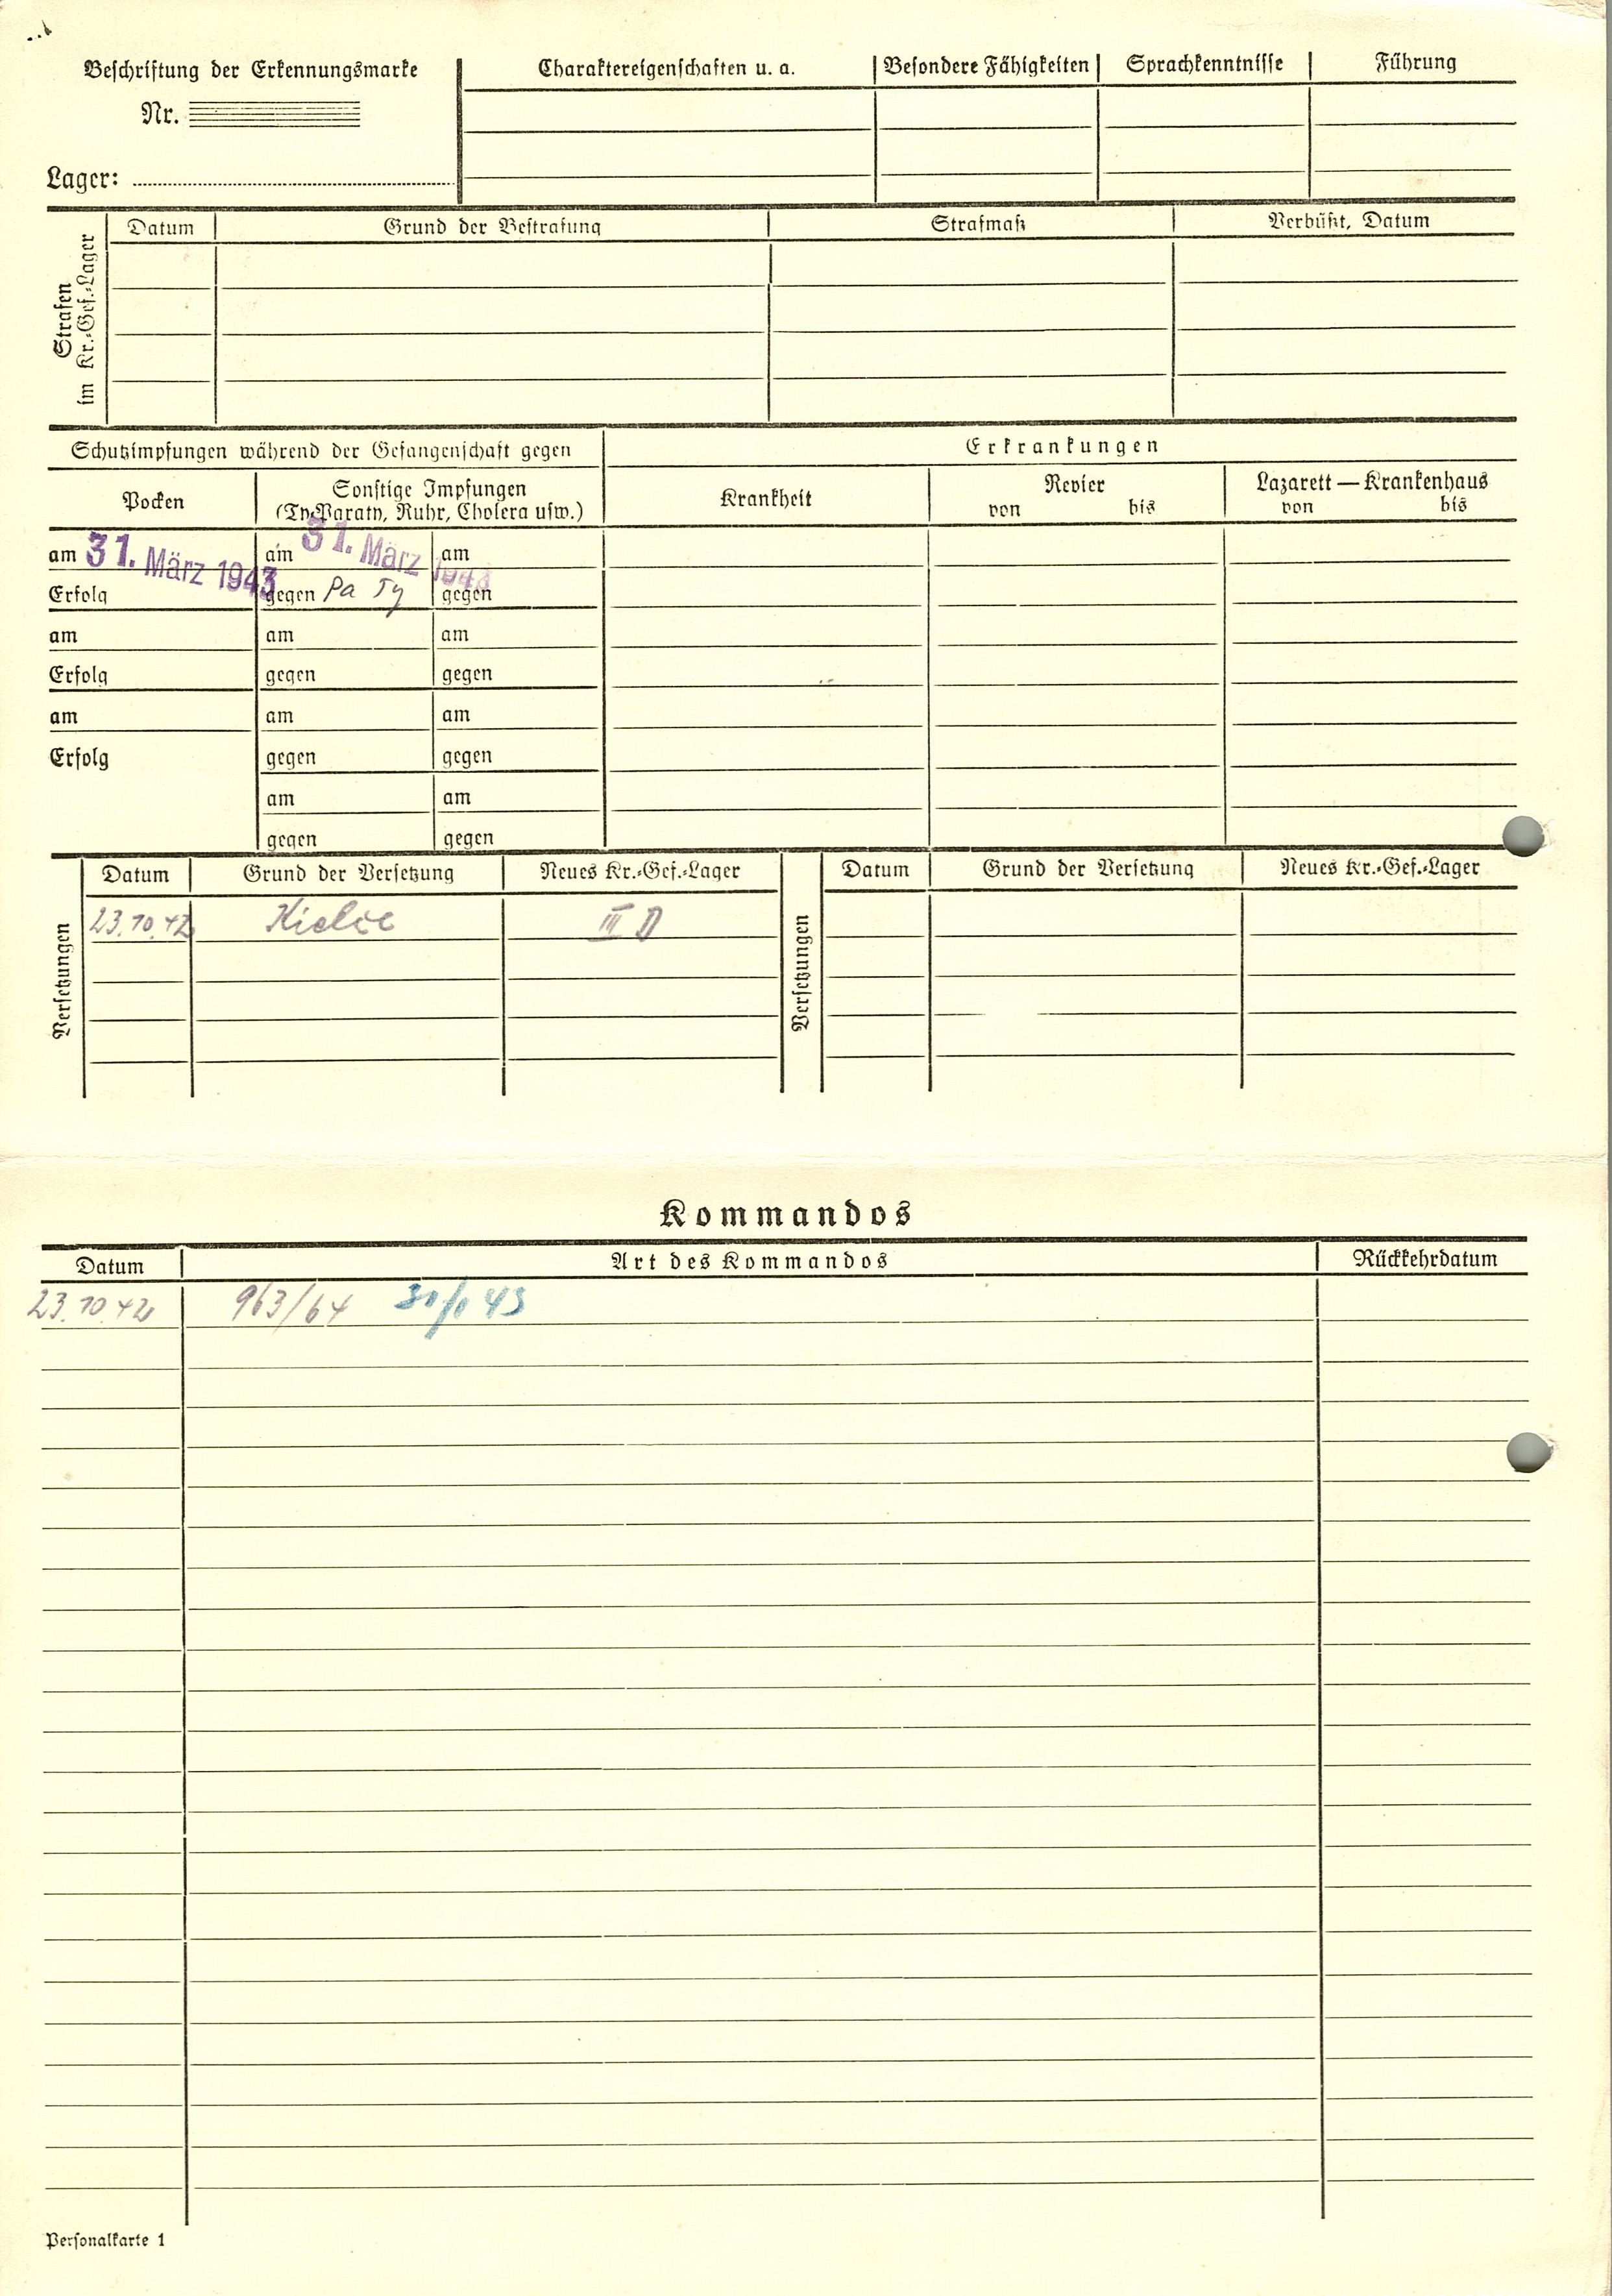 Beschriftung der Erkennungsmarke
Nr.
Lager:
Charaktereigenschaften u. a.
Besondere Fähigkeiten
Sprachkenntnisse
Führung
Strafen
im Kr.-Gef.-Lager
Datum
Grund der Bestrafung
Strafmaß
Verbüßt, Datum
Schutzimpfungen während der Gefangenschaft gegen
Erkrankungen
Pocken
Sonstige Impfungen
(Ty.Paraty, Ruhr, Cholera usw.)
Krankheit
Revier
von bis
Lazarett — Krankenhaus
von bis
am 31. März 1943 am 31. März 1943 am
Erfolg gegen Pa Ty gegen
am am am
Erfolg gegen gegen
am am am
Erfolg gegen gegen
am am
gegen gegen
Versetzungen
Datum Grund der Versetzung Neues Kr.-Gef.-Lager
23.10.42 Kielce III D
Versetzungen
Datum Grund der Versetzung Neues Kr.-Gef.-Lager
Kommandos
Datum Art des Kommandos Rückkehrdatum
23.10.42 963/64
Personalkarte 1